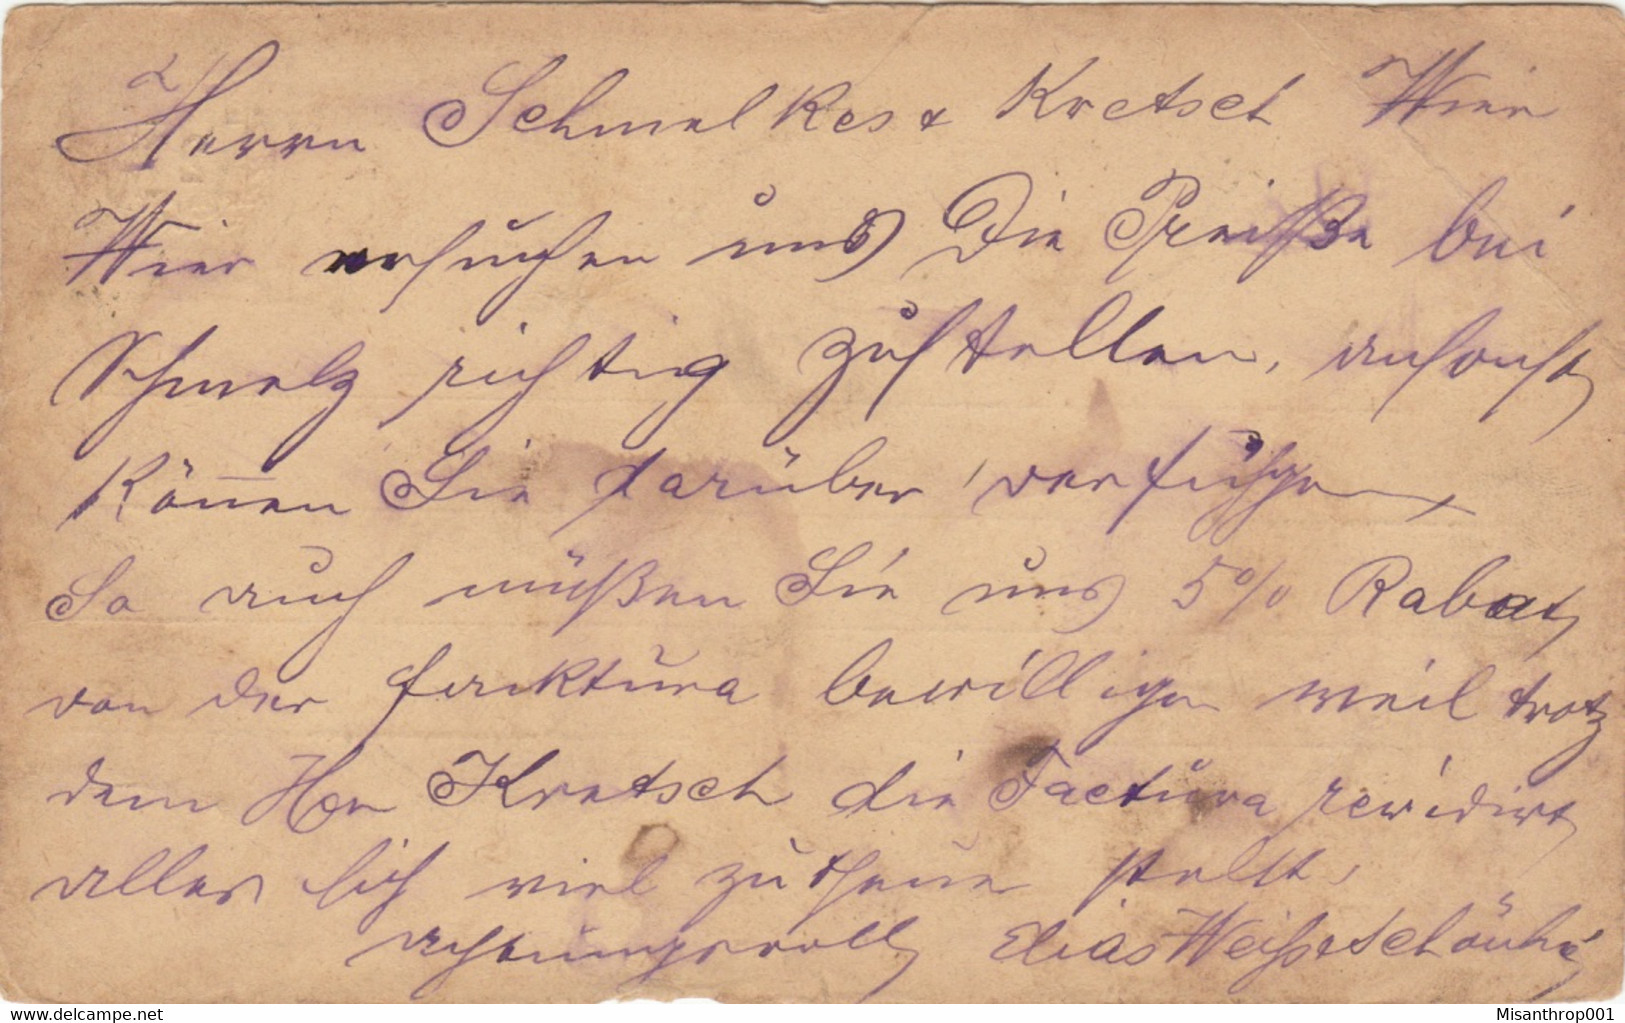 Herrn Schmelkes & Kretsch Wien
Wier ersuchen uns Die Preiße bei
Schmelz richtig zustellen, ansonst
Können Sie darüber verfühgen
So auch müßen Sie uns 5% Rabat
von der faktura bewilligen weil trotz
dem Hrn Kretsch die Factura rewidirt
alles sich viel zu theuer stellt,
achtungsvoll Elias Weiss &
Misanthrop001
delcampe.net